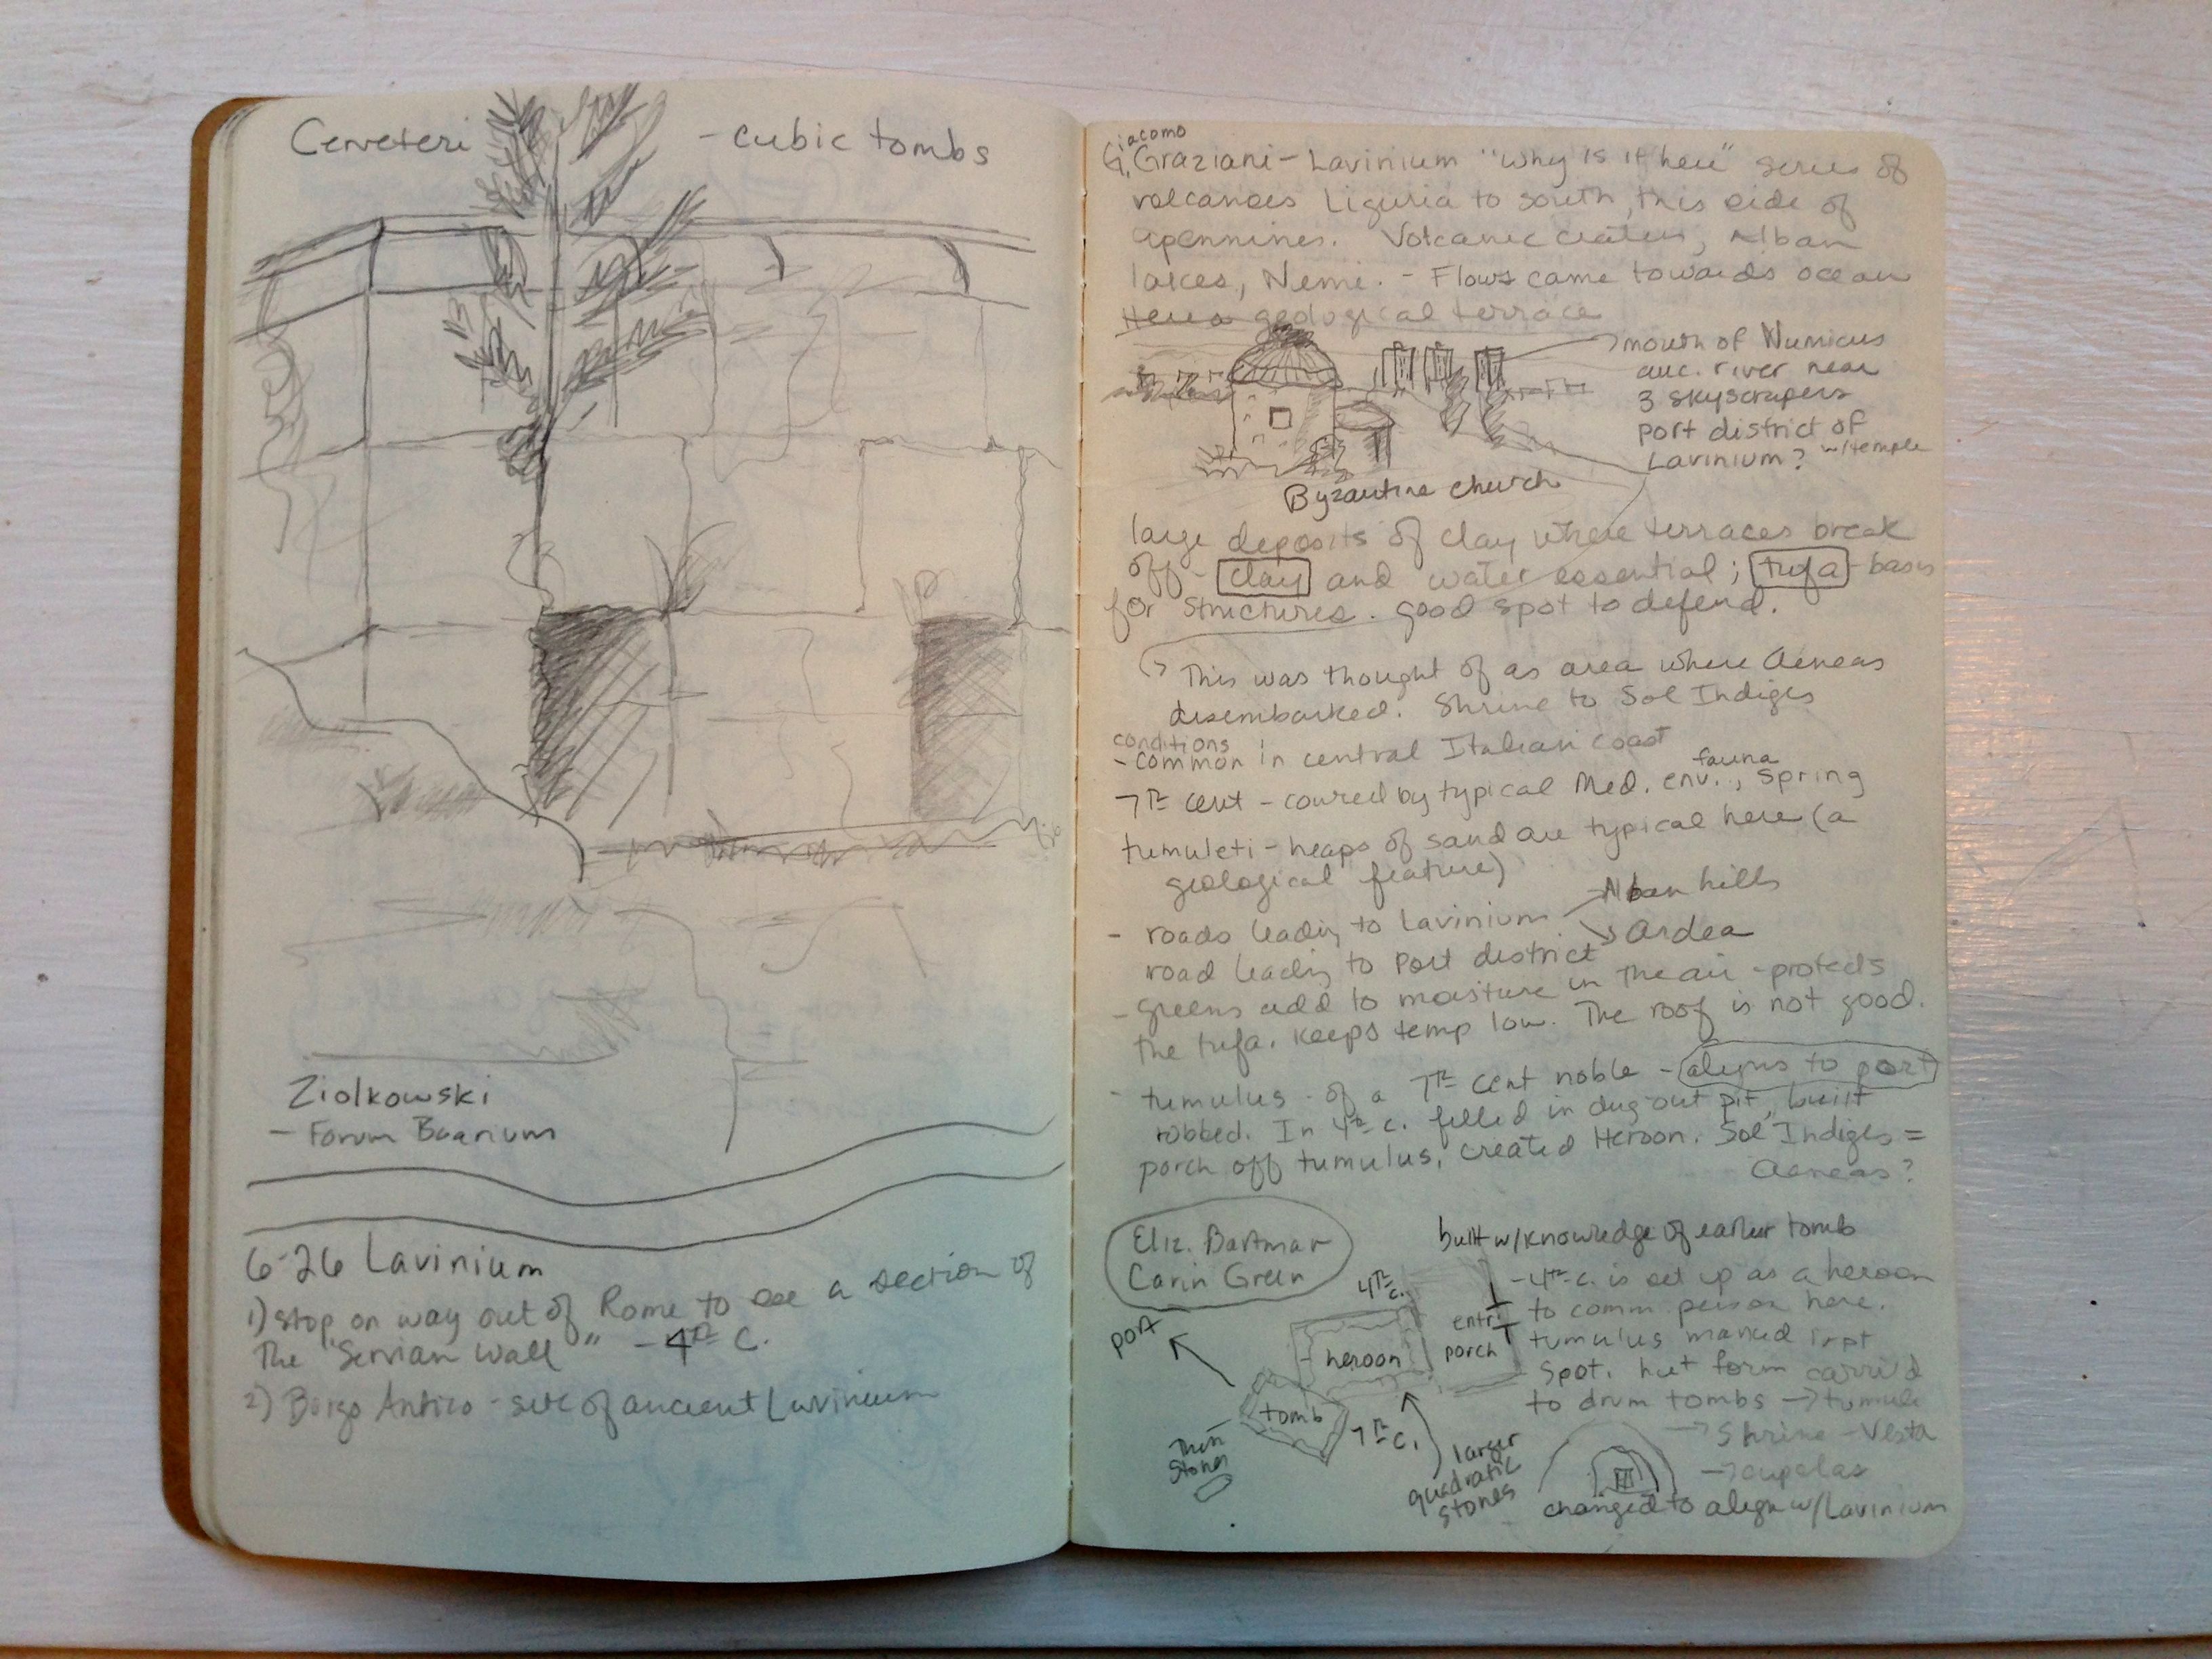 Cerveteri - cubic tombs
Ziolkowski
- Forum Boarium
6-26 Lavinium
1) stop on way out of Rome to see a section of
The "Servian Wall" - 4th c.
2) Borgo Antico - site of ancient Lavinium
Giacomo
Graziani - Lavinium "why is it here" series of
volcanoes Liguria to south, this side of
apennines. Volcanic craters, Alban
lakes, Nemi. - Flows came towards ocean
Here a geological terrace
mouth of Numicus
anc. river near
3 skyscrapers
port district of
Lavinium? w/temple
Byzantine church
large deposits of clay where terraces break
off - clay and water essential; tufa - basis
for structures. good spot to defend.
This was thought of as area where Aeneas
disembarked. Shrine to Sol Indiges
conditions
- common in central Italian coast
fauna
7th cent - covered by typical Med. env., spring
tumuleti - heaps of sand are typical here (a
geological feature)
- roads leading to Lavinium Alban hills
Ardea
road leading to port district
- greens add to moisture in the air - protects
the tufa. keeps temp low. The roof is not good.
- tumulus - of a 7th cent noble - aligns to port
robbed. In 4th c. filled in dug-out pit, built
porch off tumulus, created Heroon. Sol Indiges =
Aeneas?
Eliz. Bartman
Carin Green
built w/knowledge of earlier tomb
4th c.
port
heroon
entr.
porch
tomb
7th c.
Thin
stones
larger
quadratic
stones
- 4th c. is set up as a heroon
to comm. person here.
tumulus marked impt
spot. hut form carried
to drum tombs → tumuli
→ Shrine - Vesta
→ cupolas
changed to align w/Lavinium